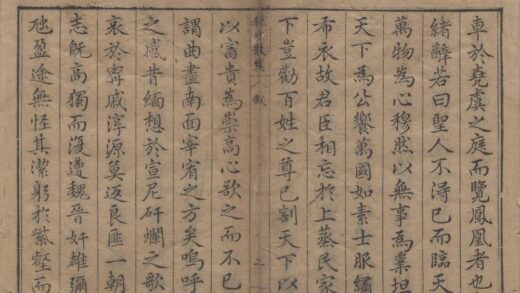 車於堯虞之庭而覽鳳凰者也
緒辭若曰聖人不得已而臨天
萬物為心穆然以無事為業坦
天下為公饗萬國如素士服繡
布衣故君臣相忘於上蒸民家
下豈勸百姓之尊已割天下以
二
以富貴為崇高心欲之而不已
謂曲盡南面宰宥之方矣嗚呼
之感昔緬想於宣尼矸爛之歌
哀於寗戚淳源莫迈良匪一朝
志既高獨而沒遭魏晉奸雄彌
虺盈途無怪其潔躬於紫壑而